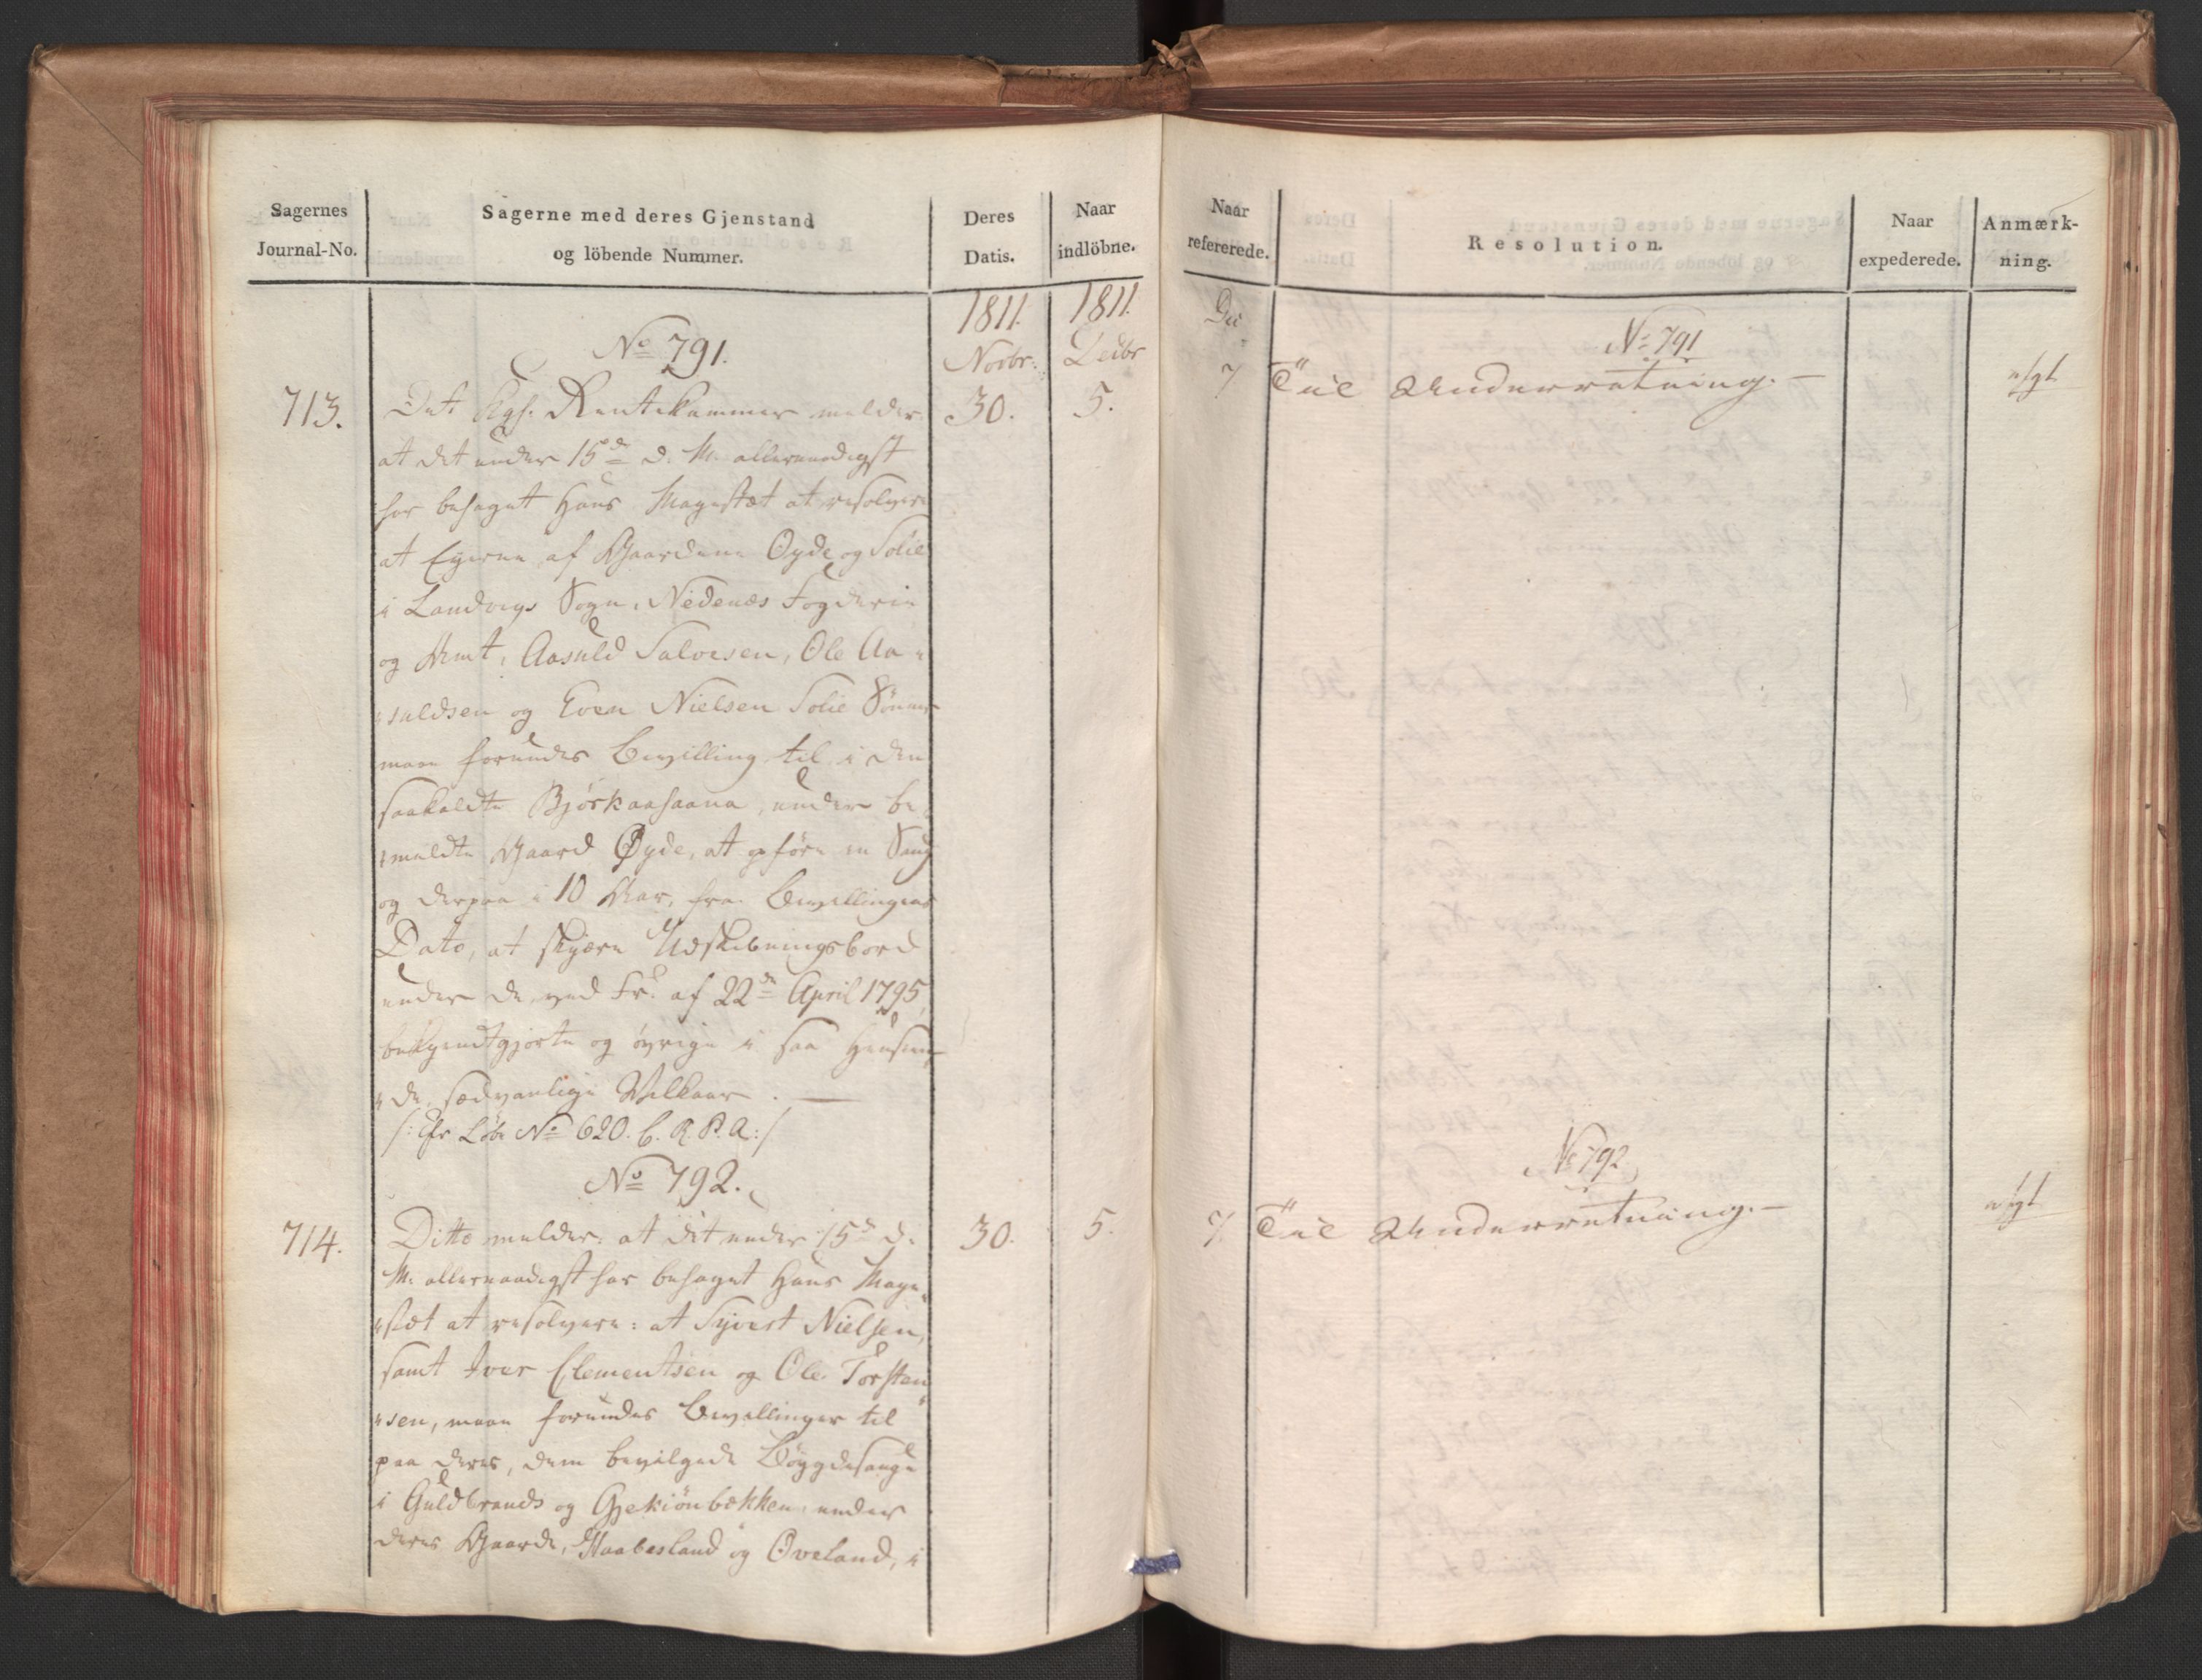 Sagernes
Journal-No.
Sagerne med deres Gjenstand
og löbende Nummer.
Deres
Datis.
Naar
indlöbne.
1811.
Novbr:
1811.
Decbr
No 791.
713.
Det Kgl. Rentekammer melder
30.
5.
at det under 15de d. M. allernaadigst
har behaget Hans Majestæt at resolvere
at Eyerne af Gaardene Oyde og Solie
i Landvigs Sogn, Nedenæs Fogderie
og Amt, Aasuld Salvesen, Ole Aa-
suldsen og Even Nielsen Solie Sönner
maae forundes Bevilling til i den
saakaldte Bjørkaasaana, under be-
meldte Gaard Øyde, at opføre en Saug
og derpaa i 10 Aar, fra Bevillingens
Dato, at skjære Udskibningsbord
under de, ved Fr. af 22de April 1795
bekjendtgjorte og øvrige i saa Henseen-
de, sædvanlige Vilkaar. —
/: Cfr Löbe No 620. b. R. P. A :/
No 792.
714.
Ditto melder: at det under 15de d.
30.
5.
M. allernaadigst har behaget Hans Maje-
stæt at resolvere: at Syvert Nielsen,
samt Iver Clementsen og Ole Torsten-
sen, maae forundes Bevillinger til
paa deres, dem bevilgede Böygdesauge
i Guldbrands og Gjekiönbekken under
deres Gaarde, Haabesland og Oveland, i
Naar
refererede.
Resolution.
Naar
expederede.
Anmærk-
ning.
No 791
7
Til Underretning. —
No 792
7
Til Underretning. —